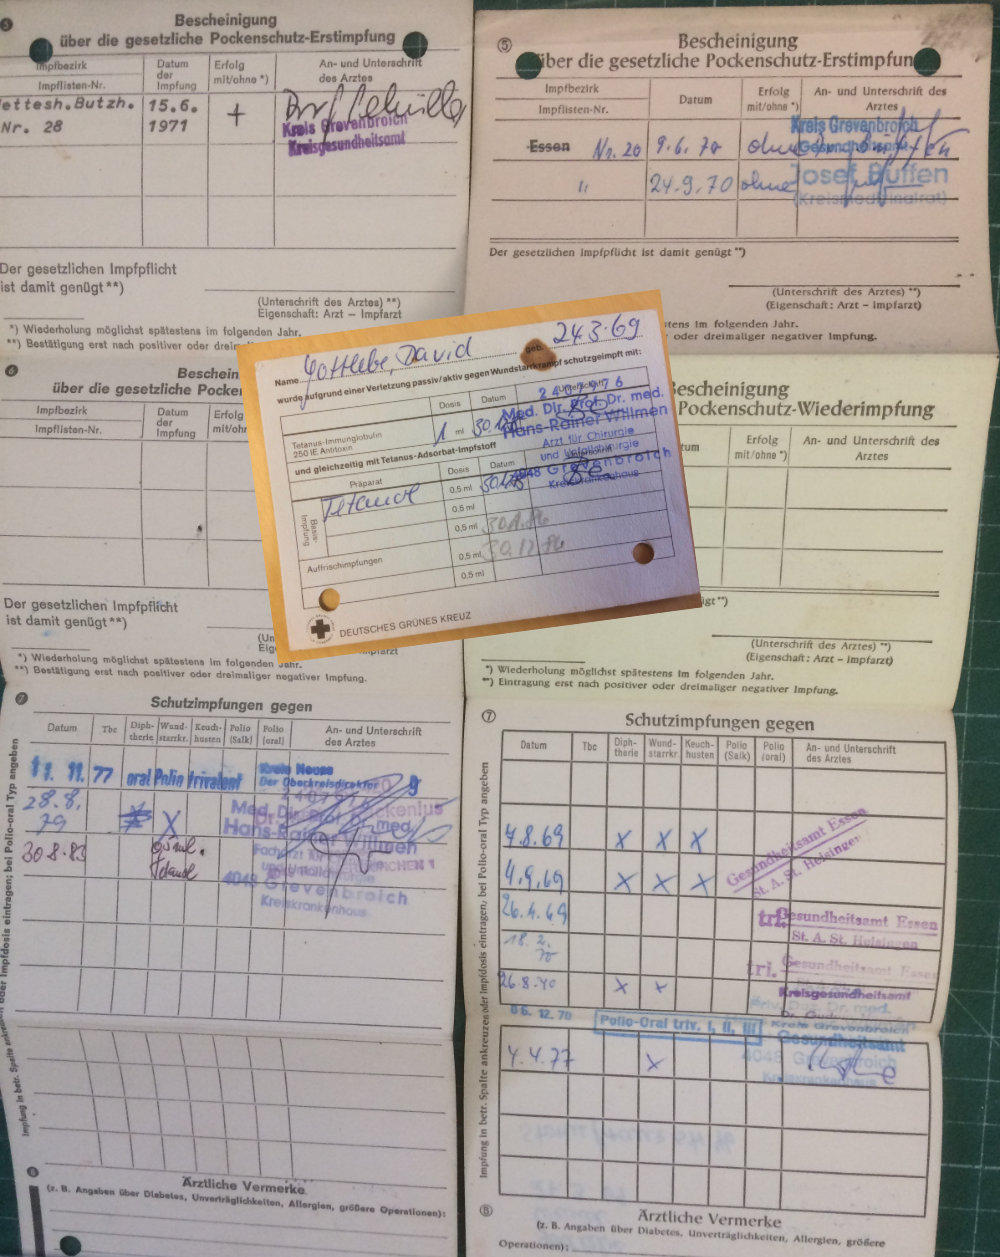 ⑤
Bescheinigung
über die gesetzliche Pockenschutz-Erstimpfung
Impfbezirk
Impflisten-Nr.
Datum
der
Impfung
Erfolg
mit/ohne *)
An- und Unterschrift
des Arztes
ettesh.Butzh.
Nr. 28
15.6.
1971
+
Kreis Grevenbroich
Kreisgesundheitsamt
Der gesetzlichen Impfpflicht
ist damit genügt **)
(Unterschrift des Arztes) **)
Eigenschaft: Arzt – Impfarzt
*) Wiederholung möglichst spätestens im folgenden Jahr.
**) Bestätigung erst nach positiver oder
⑤
Bescheinigung
über die gesetzliche Pockenschutz-Erstimpfun
Impfbezirk
Impflisten-Nr.
Datum
Erfolg
mit/ohne *)
An- und Unterschrift des
Arztes
Essen Nr. 20 9.6.70 ohne
Kreis Grevenbroich
Gesundheitsamt
" 24.9.70 ohne
Josef Büffen
(Kreismedizinalrat)
Der gesetzlichen Impfpflicht ist damit genügt **)
(Unterschrift des Arztes) **)
(Eigenschaft: Arzt – Impfarzt)
tens im folgenden Jahr.
oder dreimaliger negativer Impfung.
⑥
Beschein
über die gesetzliche Pocke
Impfbezirk
Impflisten-Nr.
Datum
der
Impfung
Erfolg
mit/ohn
Der gesetzlichen Impfpflicht
ist damit genügt **)
(Un
Eig
mpfarzt
*) Wiederholung möglichst spätestens im folgenden Jahr.
**) Bestätigung erst nach positiver oder dreimaliger negativer Impfung.
Name Gottlebe, David geb. 24.3.69
wurde aufgrund einer Verletzung passiv/aktiv gegen Wundstarrkrampf schutzgeimpft mit:
Dosis
Datum
Unterschrift
Tetanus-Immunglobulin
250 IE Antitoxin
1 ml
2407976
Med. Dir. Prof. Dr. med.
Hans-Rainer Willmen
Arzt für Chirurgie
und Unfallchirurgie
4048 Grevenbroich
Kreiskrankenhaus
und gleichzeitig mit Tetanus-Adsorbat-Impfstoff
Präparat
Dosis
Datum
Basis-
Impfung
Tetanol
0,5 ml
0,5 ml
0,5 ml
30.1.76
Auffrischimpfungen
0,5 ml
30.12.76
0,5 ml
DEUTSCHES GRÜNES KREUZ
Bescheinigung
Pockenschutz-Wiederimpfung
tum
Erfolg
mit/ohne *)
An- und Unterschrift des
Arztes
ügt **)
(Unterschrift des Arztes) **)
(Eigenschaft: Arzt – Impfarzt)
*) Wiederholung möglichst spätestens im folgenden Jahr.
**) Eintragung erst nach positiver oder dreimaliger negativer Impfung.
⑦
Schutzimpfungen gegen
Datum
Tbc
Diph-
therie
Wund-
starrkr.
Keuch-
husten
Polio
(Salk)
Polio
(oral)
An- und Unterschrift
des Arztes
11. 11. 77 oral Polio trivalent
Kreis Neuss
Der Oberkreisdirektor
28.8.
79
X
Med. Dir. Prof. Dr. med.
Hans-Rainer Willmen
30.8.83
0,5 ml.
Tetanol
4048 Grevenbroich
Kreiskrankenhaus
Impfung in betr. Spalte ankreuzen oder Impfdosis eintragen; bei Polio-oral Typ angeben
⑧
Ärztliche Vermerke
(z. B. Angaben über Diabetes, Unverträglichkeiten, Allergien, größere Operationen):
⑦
Schutzimpfungen gegen
Datum
Tbc
Diph-
therie
Wund-
starrkr
Keuch-
husten
Polio
(Salk)
Polio
(oral)
An- und Unterschrift
des Arztes
7.8.69 X X X
Gesundheitsamt Essen
St. A. St. Heisingen
4.9.69 X X X
26.4.69
tri. Gesundheitsamt Essen
St. A. St. Heisingen
18.2.
70
tri. Gesundheitsamt Essen
26.8.70 X X
Kreisgesundheitsamt
06. 12. 70 Polio-Oral triv. I, II, III
Kreis Grevenbroich
Gesundheitsamt
4.4.77 X
4048 Grevenbroich
Kreiskrankenhaus
Impfung in betr. Spalte ankreuzen oder Impfdosis eintragen; bei Polio-oral Typ angeben
⑧
Ärztliche Vermerke
(z. B. Angaben über Diabetes, Unverträglichkeiten, Allergien, größere
Operationen):